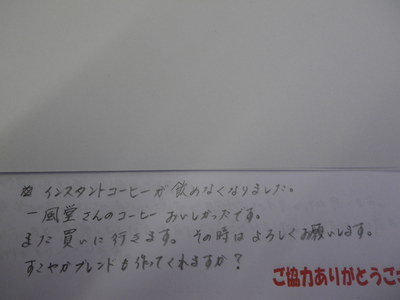 インスタントコーヒーが飲めなくなりました。
一風堂さんのコーヒーおいしかったです。
また買いに行きます。その時はよろしくお願いします。
すこやかブレンドも作ってくれますか?
ご協力ありがとうござ